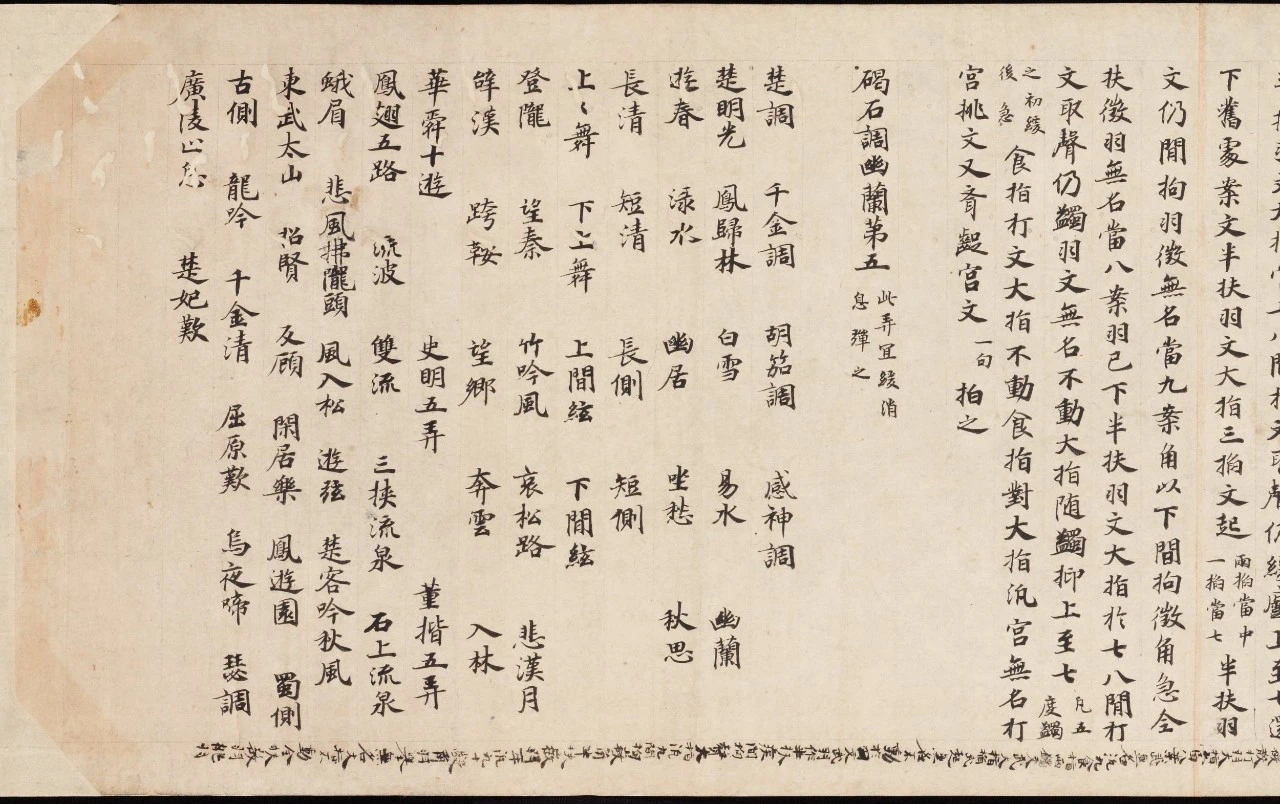 下舊處案文半扶羽文大指三掐文起兩掐當中一掐當七半扶羽
文仍間拘羽徵無名當九案角以下間拘徵角急全
扶徵羽無名當八案羽已下半扶羽文大指於七八間打
文取聲仍蠲羽文無名不動大指随蠲抑上至七凡五度蠲
之初緩後急食指打文大指不動食指對大指汎宮無名打
宮挑文又齊齪宮文一句拍之
碣石調幽蘭第五此弄宜緩消息彈之
楚調 千金調 胡笳調 感神調
楚明光 鳳歸林 白雪 易水 幽蘭
遊春 淥水 幽居 坐愁 秋思
長清 短清 長側 短側
上〻舞 下上舞 上間絃 下間絃
登隴 望秦 竹吟風 哀松路 悲漢月
辭漢 跨鞍 望鄉 奔雲 入林
華舜十遊 史明五弄 董揩五弄
鳳翅五路 流波 雙流 三挾流泉 石上流泉
蛾眉 悲風拂隴頭 風入松 遊弦 楚客吟秋風
東武太山 招賢 反顧 閑居樂 鳳遊園 蜀側
古側 龍吟 千金清 屈原歎 烏夜啼 瑟調
廣陵止息 楚妃歎